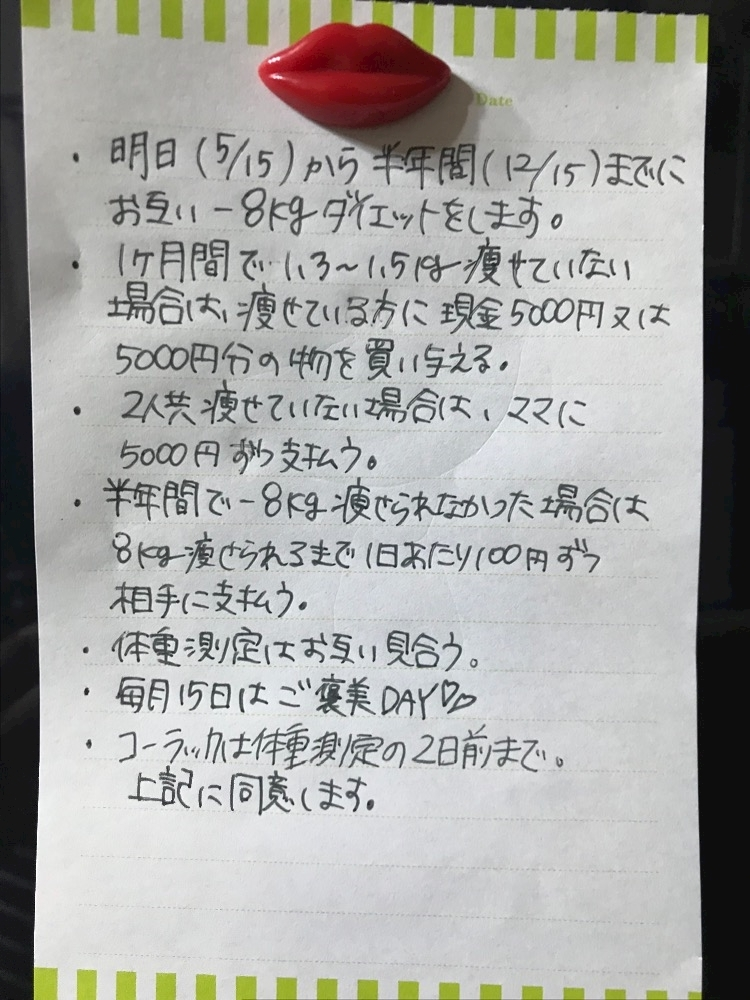 Date
・明日(5/15)から半年間(12/15)までに
お互い-8kgダイエットをします。
・1ケ月間で1.3〜1.5kg痩せていない
場合は、痩せている方に現金5000円又は
5000円分の物を買い与える。
・2人共痩せていない場合は、ママに
5000円ずつ支払う。
・半年間で-8kg痩せられなかった場合は
8kg痩せられるまで1日あたり100円ずつ
相手に支払う。
・体重測定はお互い見合う。
・毎月15日はご褒美DAY♡♡
・コーラックは体重測定の2日前まで。
上記に同意します。